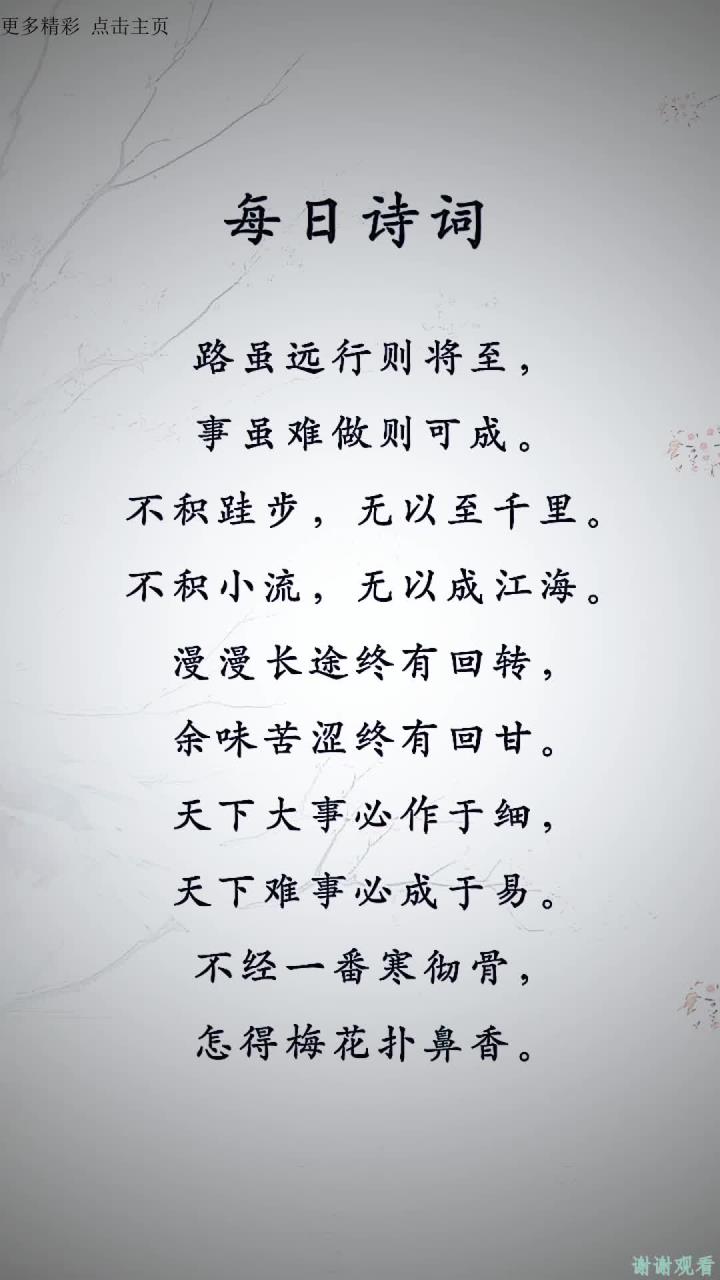 更多精彩 点击主页
每日诗词
路虽远行则将至，
事虽难做则可成。
不积跬步，无以至千里。
不积小流，无以成江海。
漫漫长途终有回转，
余味苦涩终有回甘。
天下大事必作于细，
天下难事必成于易。
不经一番寒彻骨，
怎得梅花扑鼻香。
谢谢观看